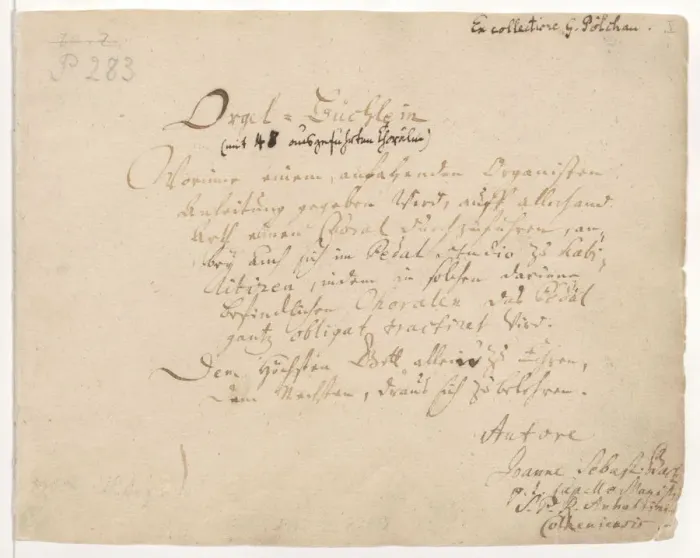 Ex collectione G. Pölchau.
P 283
Orgel=Büchlein
(mit 48 ausgeführten Chorälen)
Worinne einem anfahenden Organisten
Anleitung gegeben wird, auff allerhand
Arth einen Choral durchzuführen, an-
bey auch sich im Pedal studio zu habi-
litiren, indem in solchen darinne
befindlichen Choralen das Pedal
gantz obligat tractiret wird.
Dem Höchsten Gott allein zu Ehren,
Dem Nechsten, draus sich zu belehren.
Autore
Joanne Sebast. Bach
p. t. Capellæ Magistri
S. P. R. Anhaltini-
Cotheniensis.